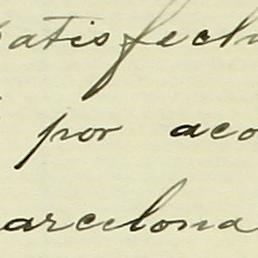 satisfech
por aco
arcelona